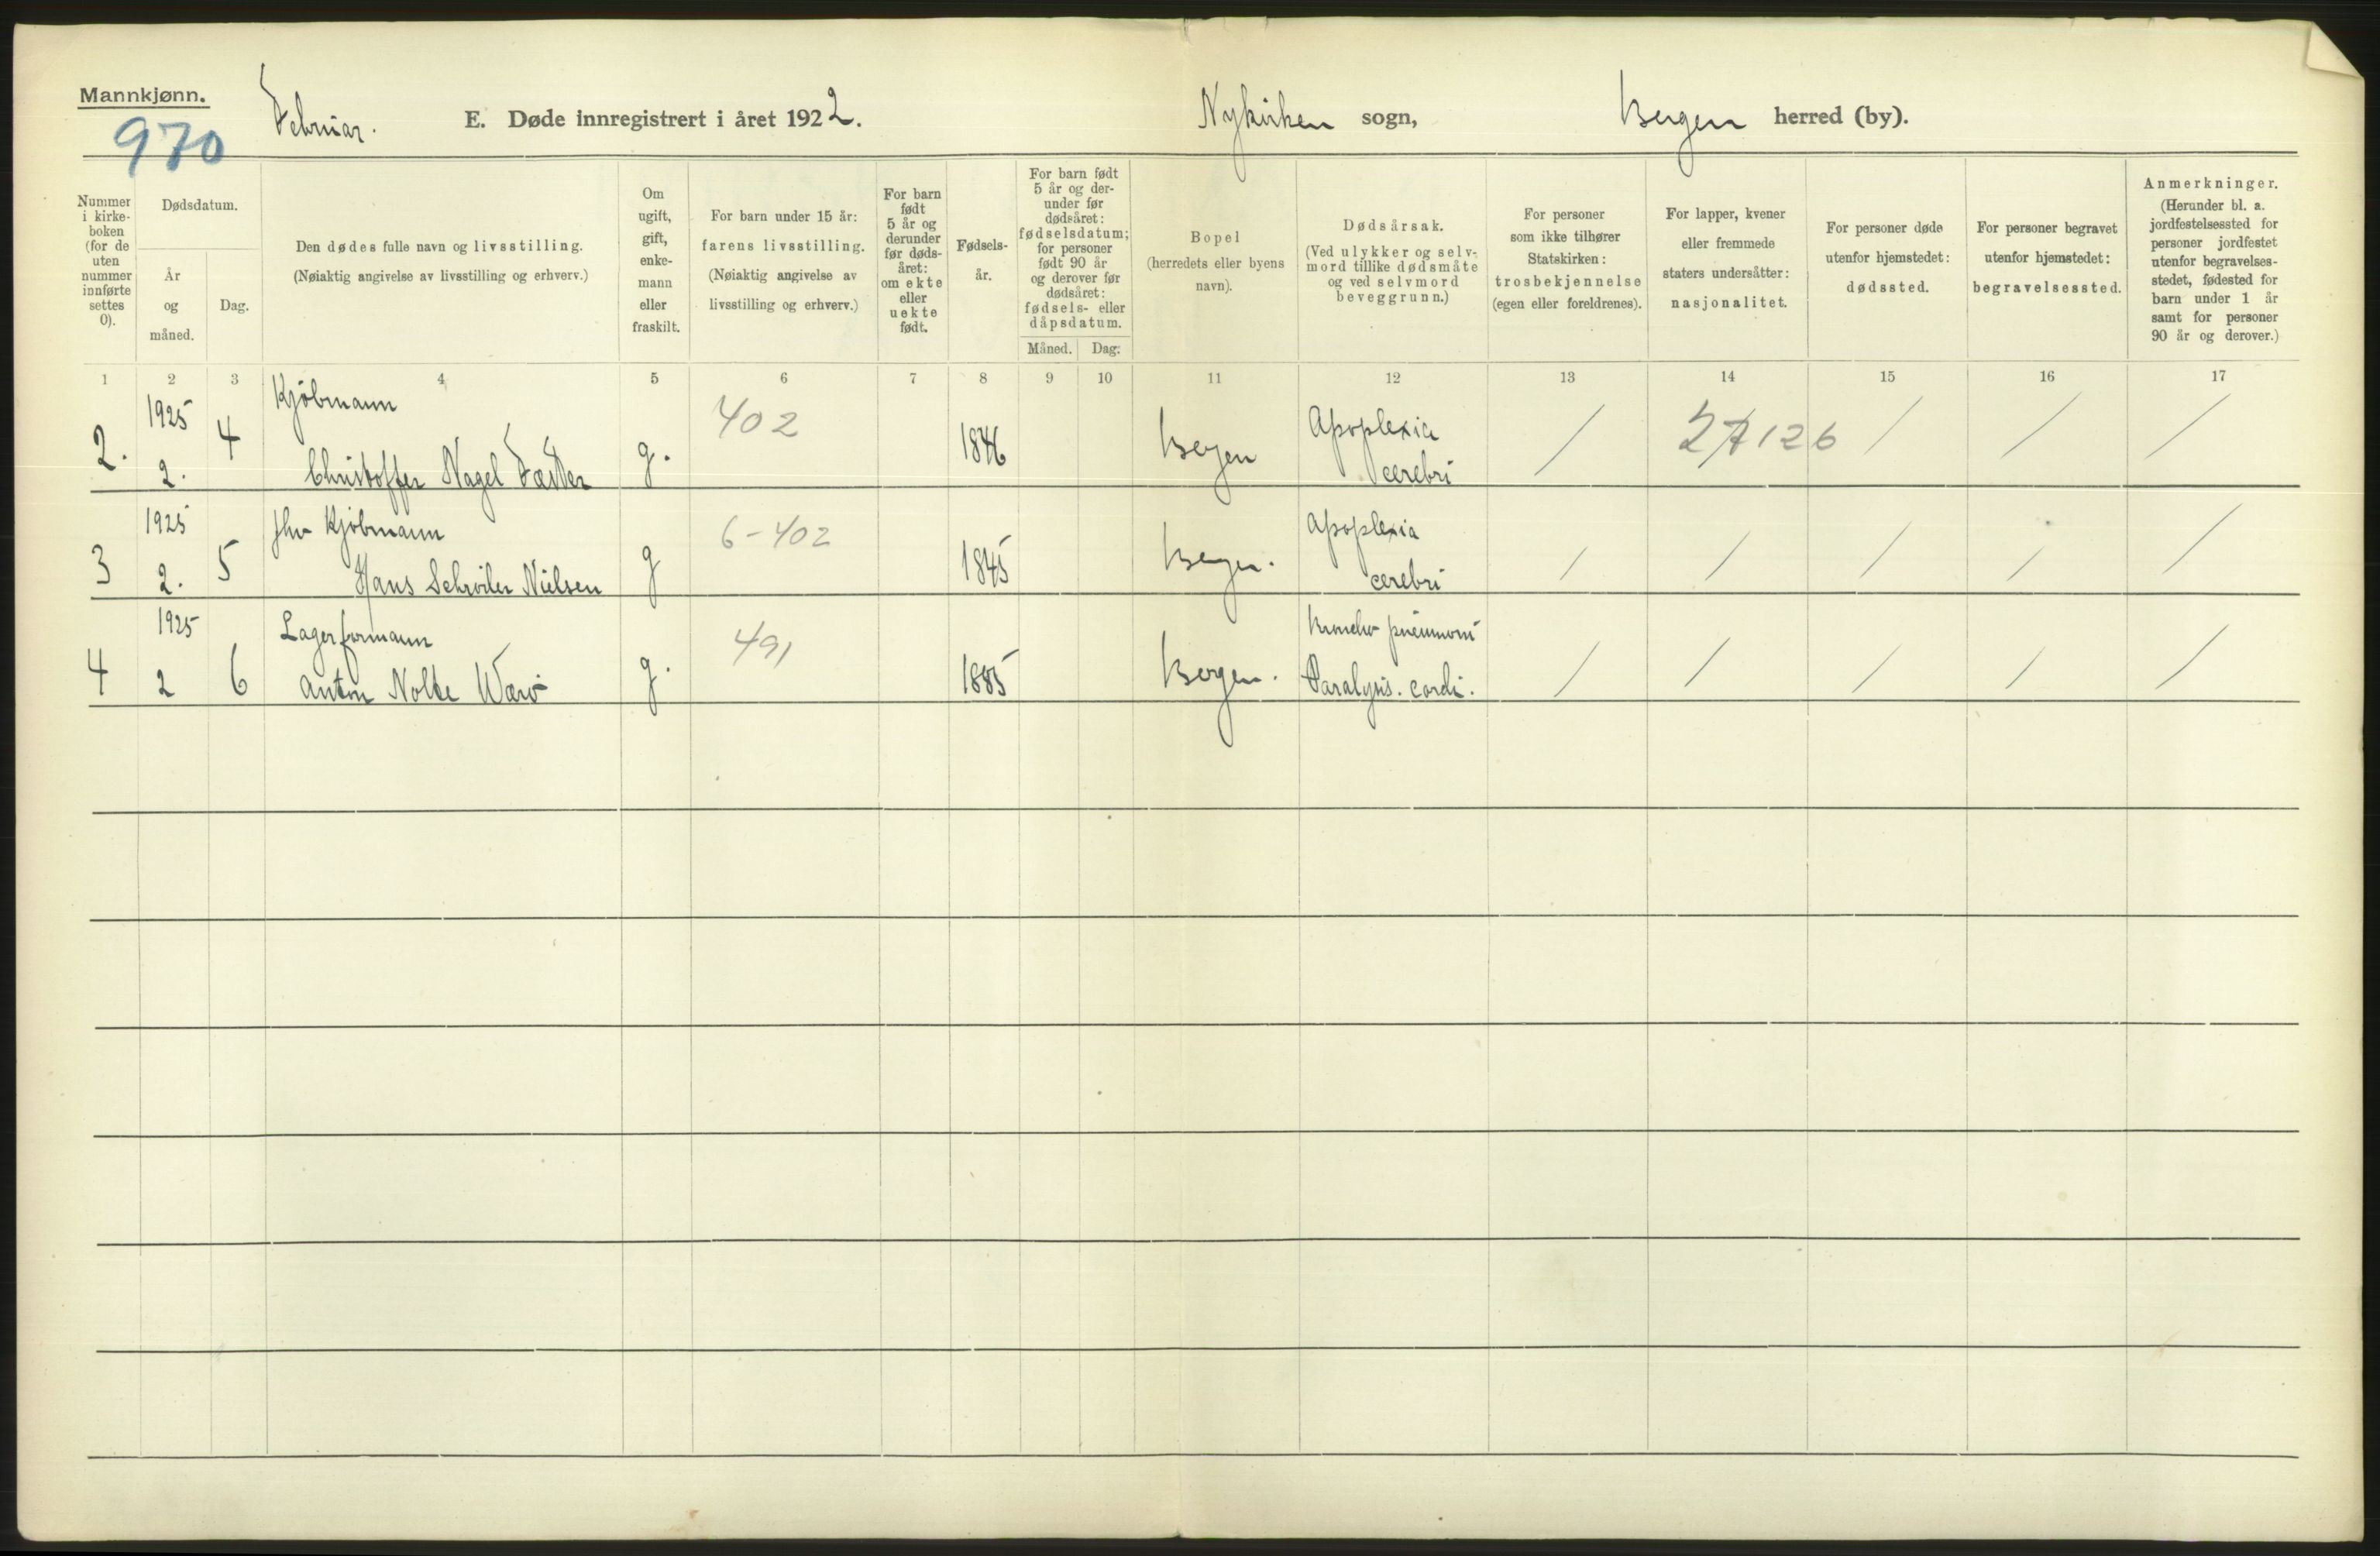 Mannkjønn.
970
Februar.
E. Døde innregistrert i året 1922.
Nykirken sogn,
Bergen herred (by).
Nummer
i kirke-
boken
(for de
uten
nummer
innførte
settes
0).
Dødsdatum.
År
og
måned.
Dag.
Den dødes fulle navn og livsstilling.
(Nøiaktig angivelse av livsstilling og erhverv.)
Om
ugift,
gift,
enke-
mann
eller
fraskilt.
For barn under 15 år:
farens livsstilling.
(Nøiaktig angivelse av
livsstilling og erhverv.)
For barn
født
5 år og
derunder
før døds-
året:
om ekte
eller
uekte
født.
Fødsels-
år.
For barn født
5 år og der-
under før
dødsåret:
fødselsdatum;
for personer
født 90 år
og derover før
dødsåret:
fødsels- eller
dåpsdatum.
Måned.
Dag.
Bopel
(herredets eller byens
navn).
Dødsårsak.
(Ved ulykker og selv-
mord tillike dødsmåte
og ved selvmord
beveggrunn.)
For personer
som ikke tilhører
Statskirken:
trosbekjennelse
(egen eller foreldrenes).
For lapper, kvener
eller fremmede
staters undersåtter:
nasjonalitet.
For personer døde
utenfor hjemstedet:
dødssted.
For personer begravet
utenfor hjemstedet:
begravelsessted.
Anmerkninger.
(Herunder bl. a.
jordfestelsessted for
personer jordfestet
utenfor begravelses-
stedet, fødested for
barn under 1 år
samt for personer
90 år og derover.)
1 2 3 4 5 6 7 8 9 10 11 12 13 14 15 16 17
Kjøbmann
1925 402 Apoplexia
2. 2. 4 Christoffer Nagel g. 1846 Bergen cerebri / 27126 / / /
1925 fhv Kjøbmann 6-402 Apoplexia
3 2. 5 Hans Schrøder Nielsen g 1845 Bergen. cerebri / / / / /
1925 Lagerformann 491 Broncho pneumoni
4 2 6 Anton Nolte g. 1885 Bergen. Paralysis. cordi. / / / / /